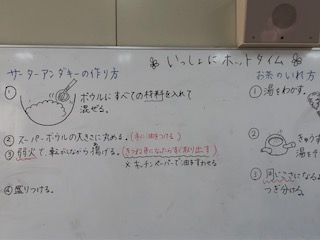 いっしょにホットタイム
サーターアンダギーの作り方
① ボウルにすべての材料を入れて
混ぜる。
② スーパーボウルの大きさに丸める。(手に油をつける)
③ 弱火で、転がしながら揚げる。(きつね色になったらすぐ取り出す)
※キッチンペーパーで油をすわせる
④ 盛りつける。
お茶のいれ方
① 湯をわかす。
② きゅうす
湯を
③ 同じこさになるよ
つぎ分ける。